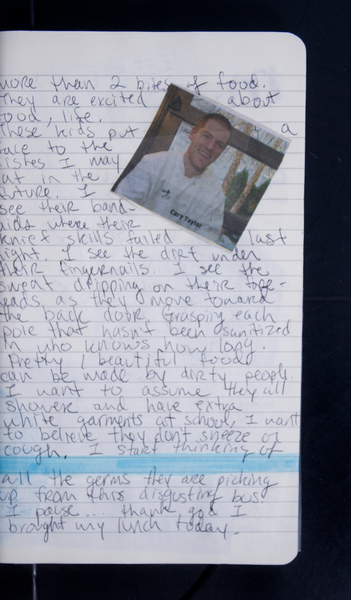 more than 2 bites of food.
They are excited about
food, life.
These kids put a
face to the
dishes I may
eat in the
future. I
see their band-
aids where their
knife skills failed last
night. I see the dirt under
their fingernails. I see the
sweat dripping on their fore-
heads as they move toward
the back door. Grasping each
pole that hasn't been sanitized
in who knows how long.
Pretty / beautiful food
can be made by dirty people.
I want to assume they all
shower and have extra
white garments at school, I want
to believe they don't sneeze or
cough. I start thinking of
all the germs they are picking
up from this disgusting bus.
I pause... thank god I
brought my lunch today.
Cary Taylor